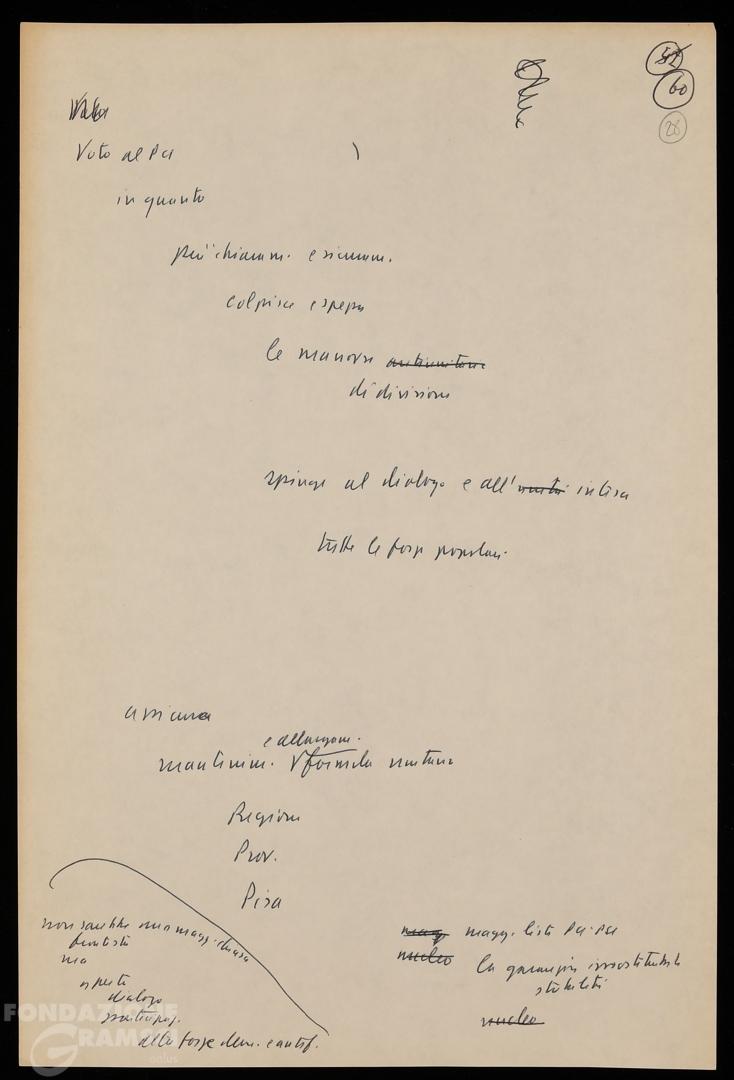 60
28
Voto al PCI
in quanto
più chiaram. e sicuram.
colpisce e spezza
le manovre antiunitarie
di divisione
spinge al dialogo e all'unità intesa
tutte le forze popolari.
assicura
e allargam.
mantenim. V formula unitaria
Regione
Prov.
Pisa
non sarebbe una magg. chiusa
frontista
ma
aperta
dialogo
partecipaz.
altre forze dem. e antif.
magg magg. liste PCI-PSI
nucleo la garanzia insostituibile
stabilità
nucleo
FONDAZIONE
GRAMSCI
onlus